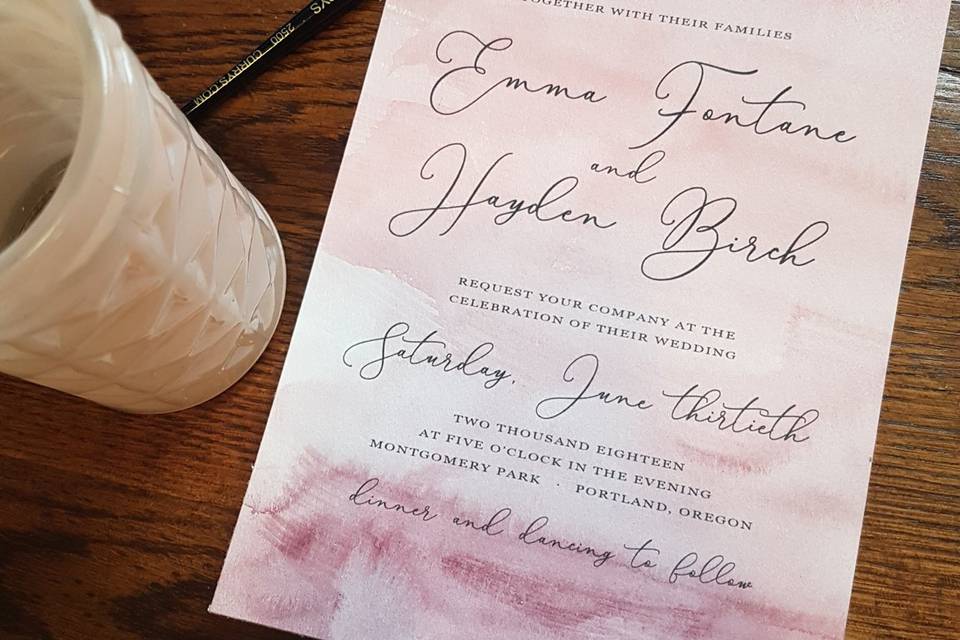 TOGETHER WITH THEIR FAMILIES
Emma Fontane
and
Hayden Birch
REQUEST YOUR COMPANY AT THE
CELEBRATION OF THEIR WEDDING
Saturday, June thirtieth
TWO THOUSAND EIGHTEEN
AT FIVE O'CLOCK IN THE EVENING
MONTGOMERY PARK · PORTLAND, OREGON
dinner and dancing to follow
2500 CURRYS.COM